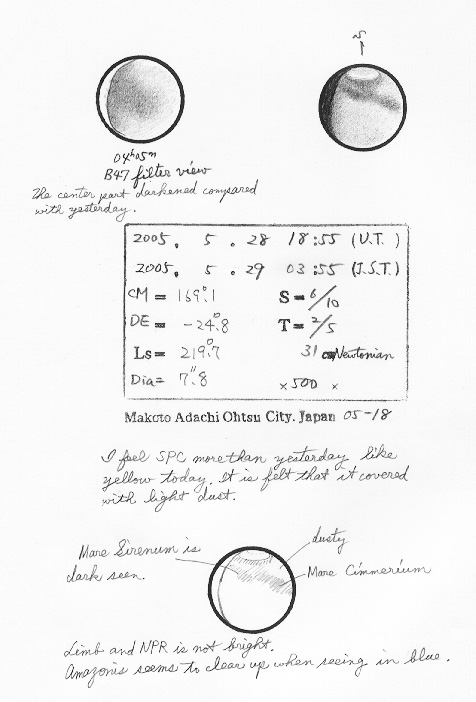 S
04ʰ05ᵐ
B47 filter view
The center part darkened compared
with yesterday.
2005. 5. 28 18:55 (U.T.)
2005. 5. 29 03:55 (J.S.T.)
CM = 169°.1 S = 6/10
DE = -24°.8 T = 2/5
Ls = 219°.7 31 cm Newtonian
Dia = 7".8 ×500 ×
Makoto Adachi Ohtsu City. Japan 05-18
I feel SPC more than yesterday like
yellow today. It is felt that it covered
with light dust.
dusty
Mare Sirenum is
dark seen.
Mare Cimmerium
Limb and NPR is not bright.
Amazonis seems to clear up when seeing in blue.